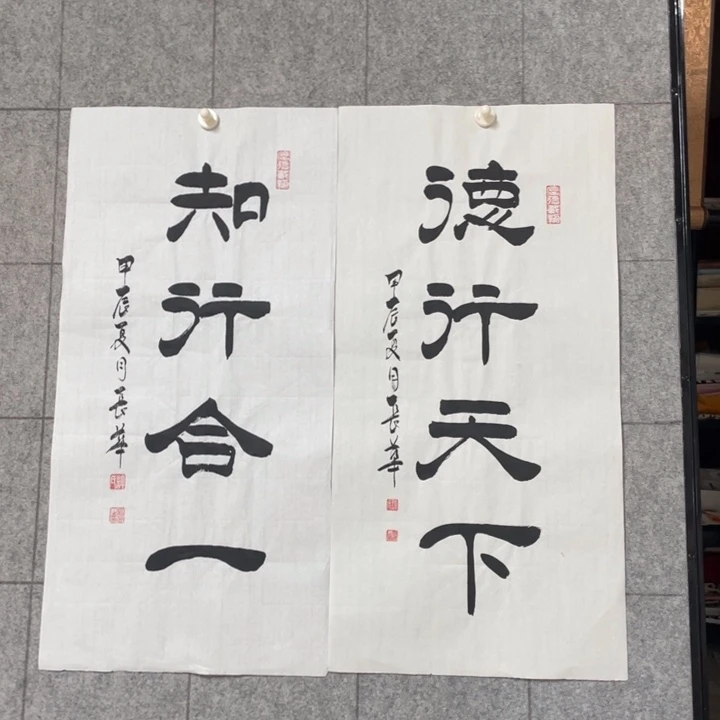 德行天下
甲辰夏月長華
知行合一
甲辰夏月長華